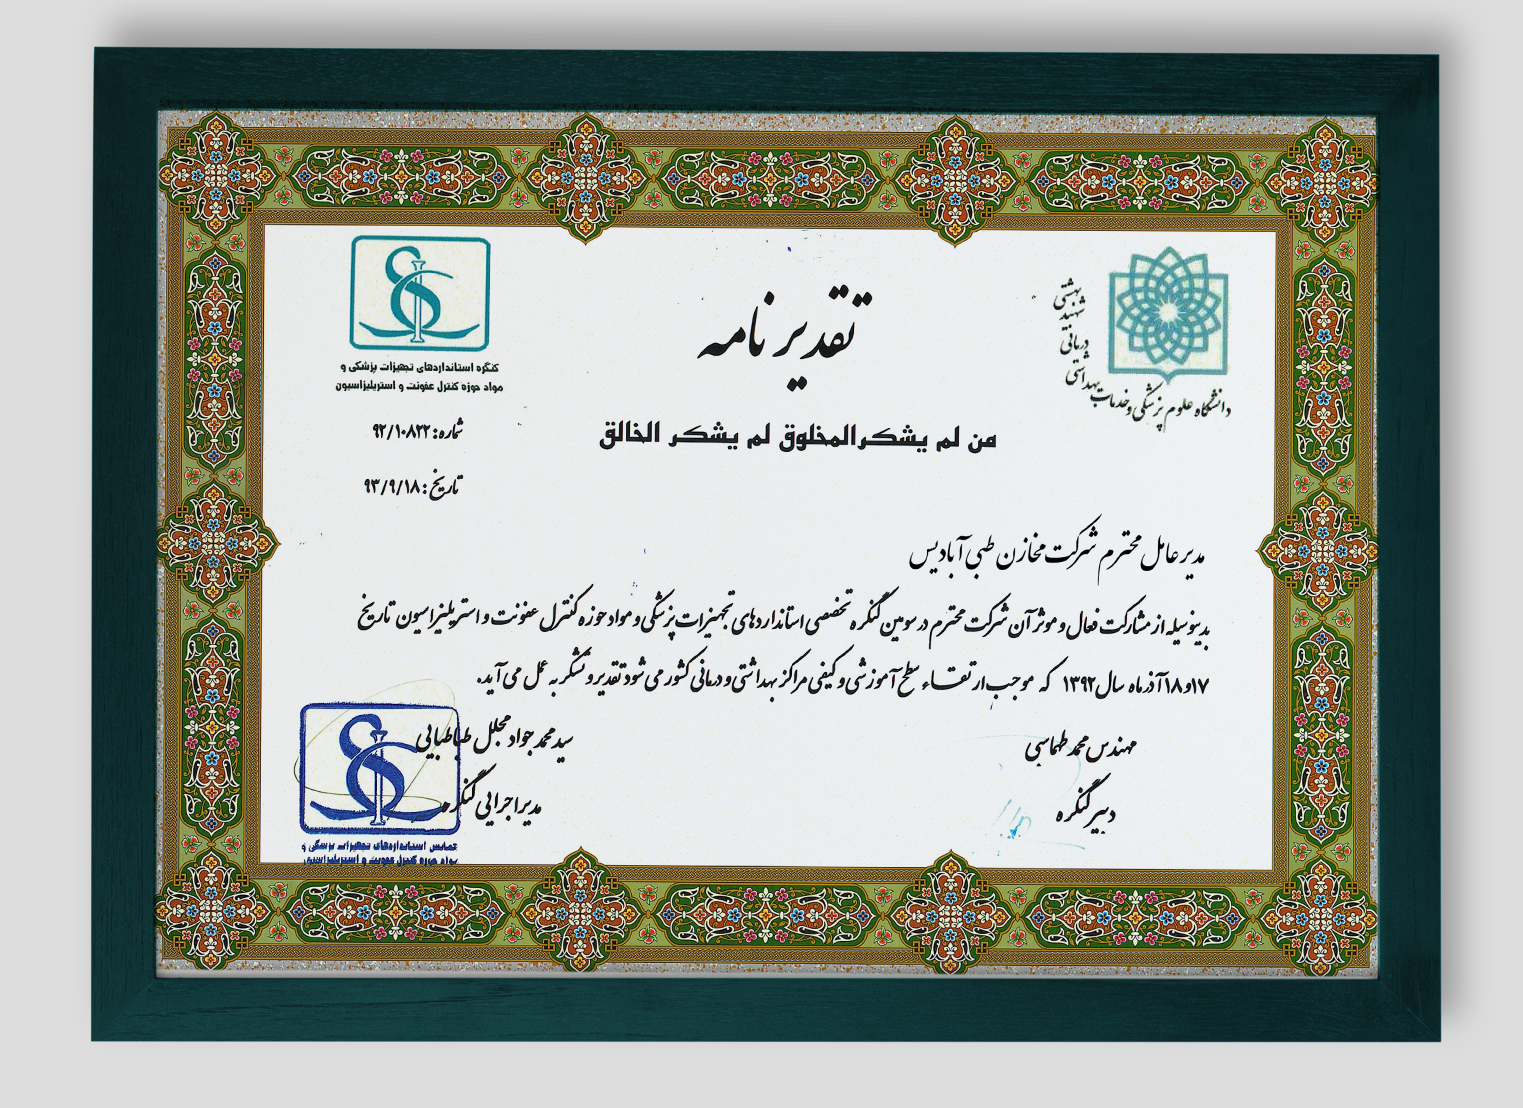 تقدیر نامه
دانشگاه علوم پزشکی و خدمات بهداشتی درمانی شهید بهشتی
کنگره استانداردهای تجهیزات پزشکی و
مواد حوزه کنترل عفونت و استریلیزاسیون
من لم یشکر المخلوق لم یشکر الخالق
شماره: ۹۲/۱۰۸۲۲
تاریخ: ۹۳/۹/۱۸
مدیر عامل محترم شرکت مخازن طبی آبادیس
بدینوسیله از مشارکت فعال و موثر آن شرکت محترم در سومین کنگره تخصصی استانداردهای تجهیزات پزشکی و مواد حوزه کنترل عفونت و استریلیزاسیون تاریخ
۱۷و۱۸آذرماه سال ۱۳۹۲ که موجب ارتقاء سطح آموزشی و کیفی مراکز بهداشتی و درمانی کشور می شود تقدیر و تشکر به عمل می آید.
مهندس محمد طهماسبی
دبیر کنگره
سید محمد جواد مجلل طباطبایی
مدیر اجرایی کنگره
همایش استانداردهای تجهیزات پزشکی و
مواد حوزه کنترل عفونت و استریلیزاسیون